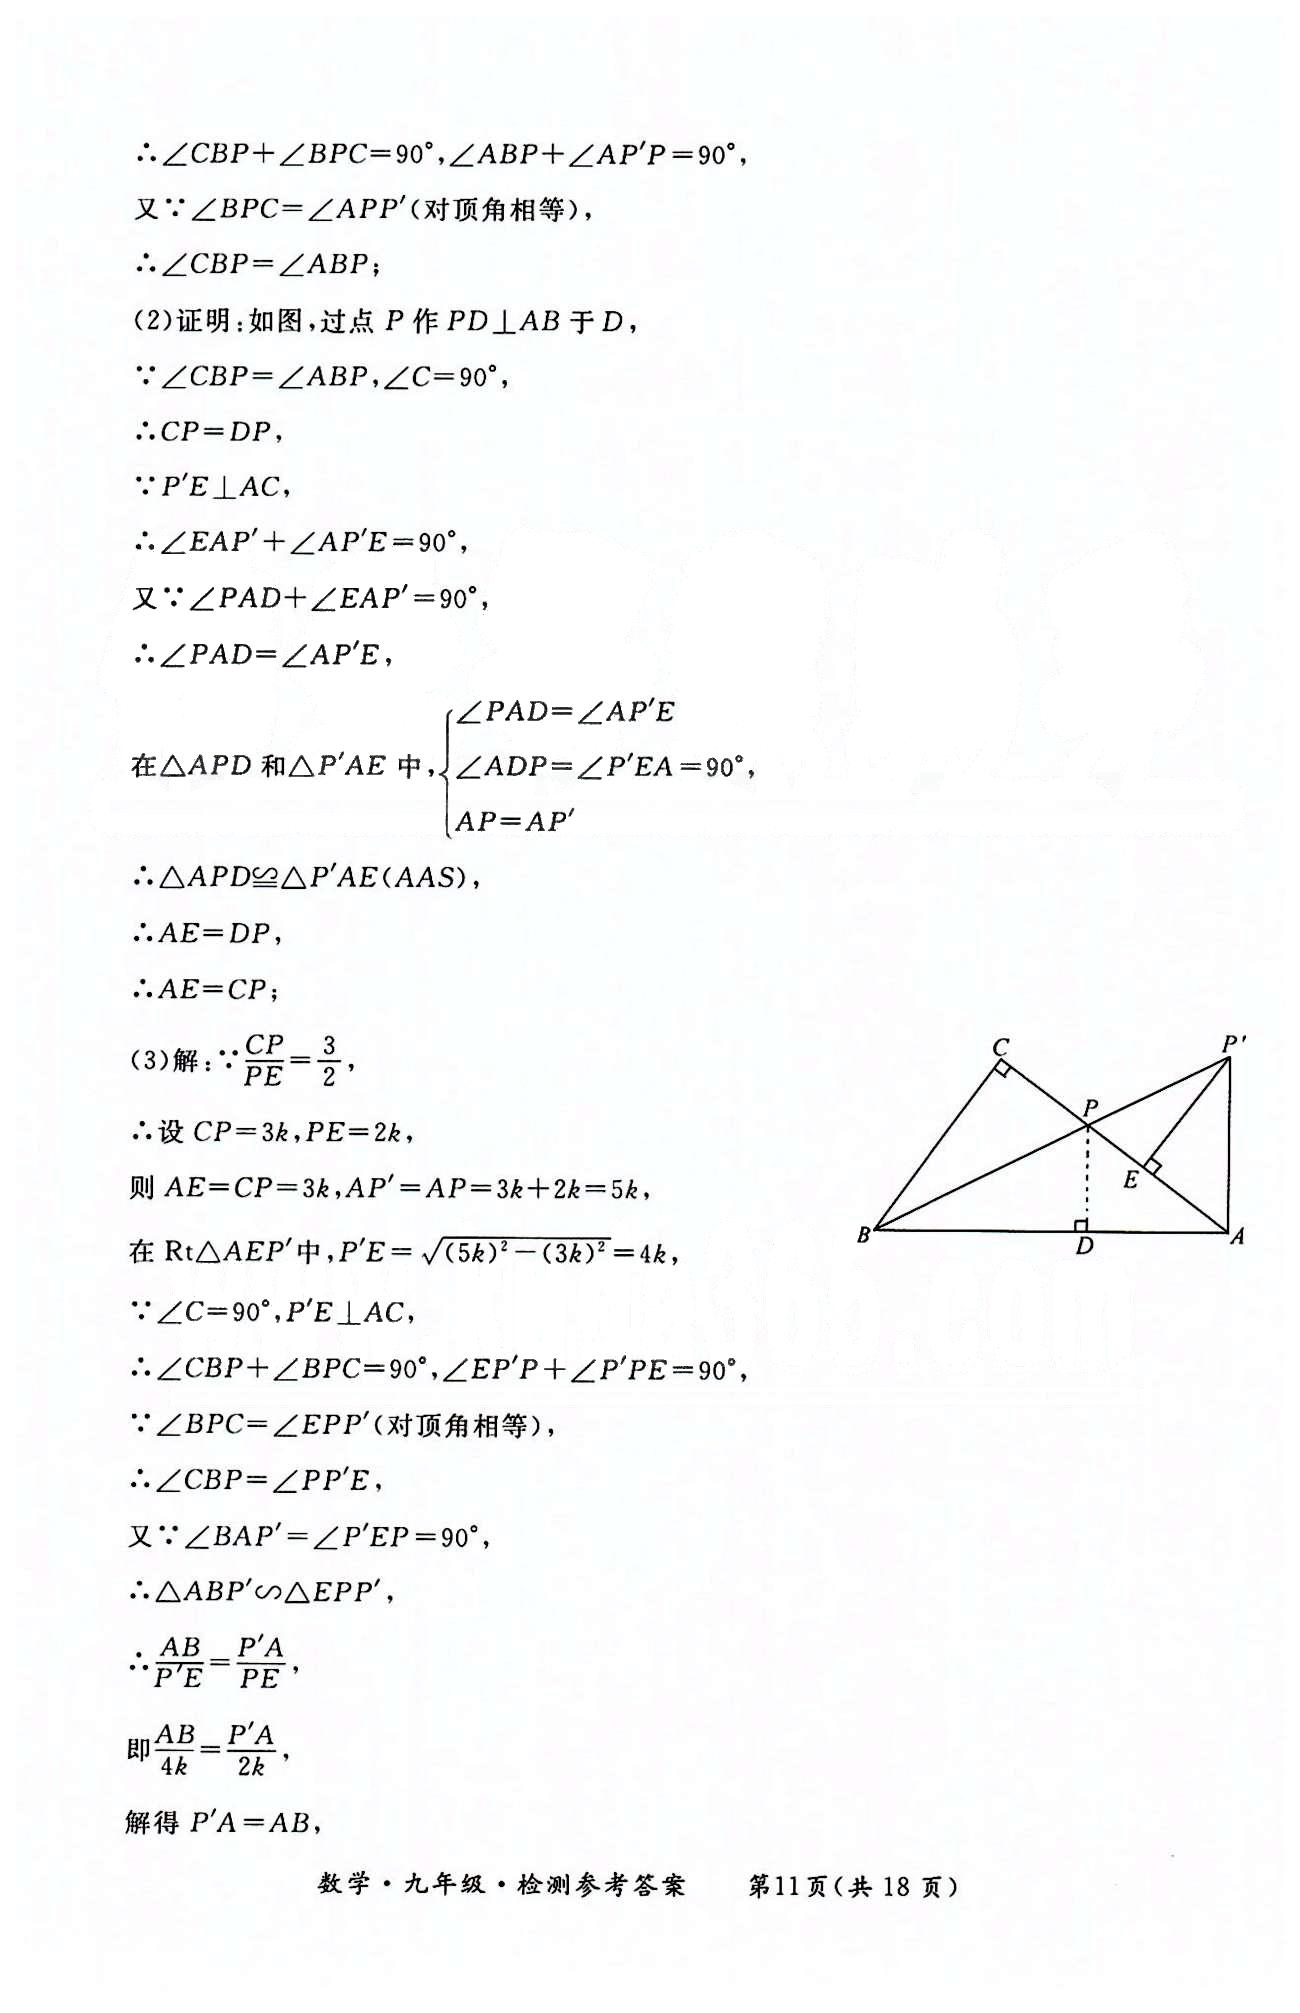 ∴∠CBP+∠BPC=90°,∠ABP+∠AP′P=90°,
又∵∠BPC=∠APP′(对顶角相等),
∴∠CBP=∠ABP;
(2)证明:如图,过点 P 作 PD⊥AB 于 D,
∵∠CBP=∠ABP,∠C=90°,
∴CP=DP,
∵P′E⊥AC,
∴∠EAP′+∠AP′E=90°,
又∵∠PAD+∠EAP′=90°,
∴∠PAD=∠AP′E,
在△APD 和△P′AE 中,{∠PAD=∠AP′E
∠ADP=∠P′EA=90°,
AP=AP′
∴△APD≌△P′AE(AAS),
∴AE=DP,
∴AE=CP;
(3)解:∵CP/PE=3/2,
∴设 CP=3k,PE=2k,
则 AE=CP=3k,AP′=AP=3k+2k=5k,
在 Rt△AEP′中,P′E=√((5k)²-(3k)²)=4k,
∵∠C=90°,P′E⊥AC,
∴∠CBP+∠BPC=90°,∠EP′P+∠P′PE=90°,
∵∠BPC=∠EPP′(对顶角相等),
∴∠CBP=∠PP′E,
又∵∠BAP′=∠P′EP=90°,
∴△ABP′∽△EPP′,
∴AB/P′E=P′A/PE,
即AB/4k=P′A/2k,
解得 P′A=AB,
C
P′
P
E
B
D
A
数学·九年级·检测参考答案 第11页(共 18 页)